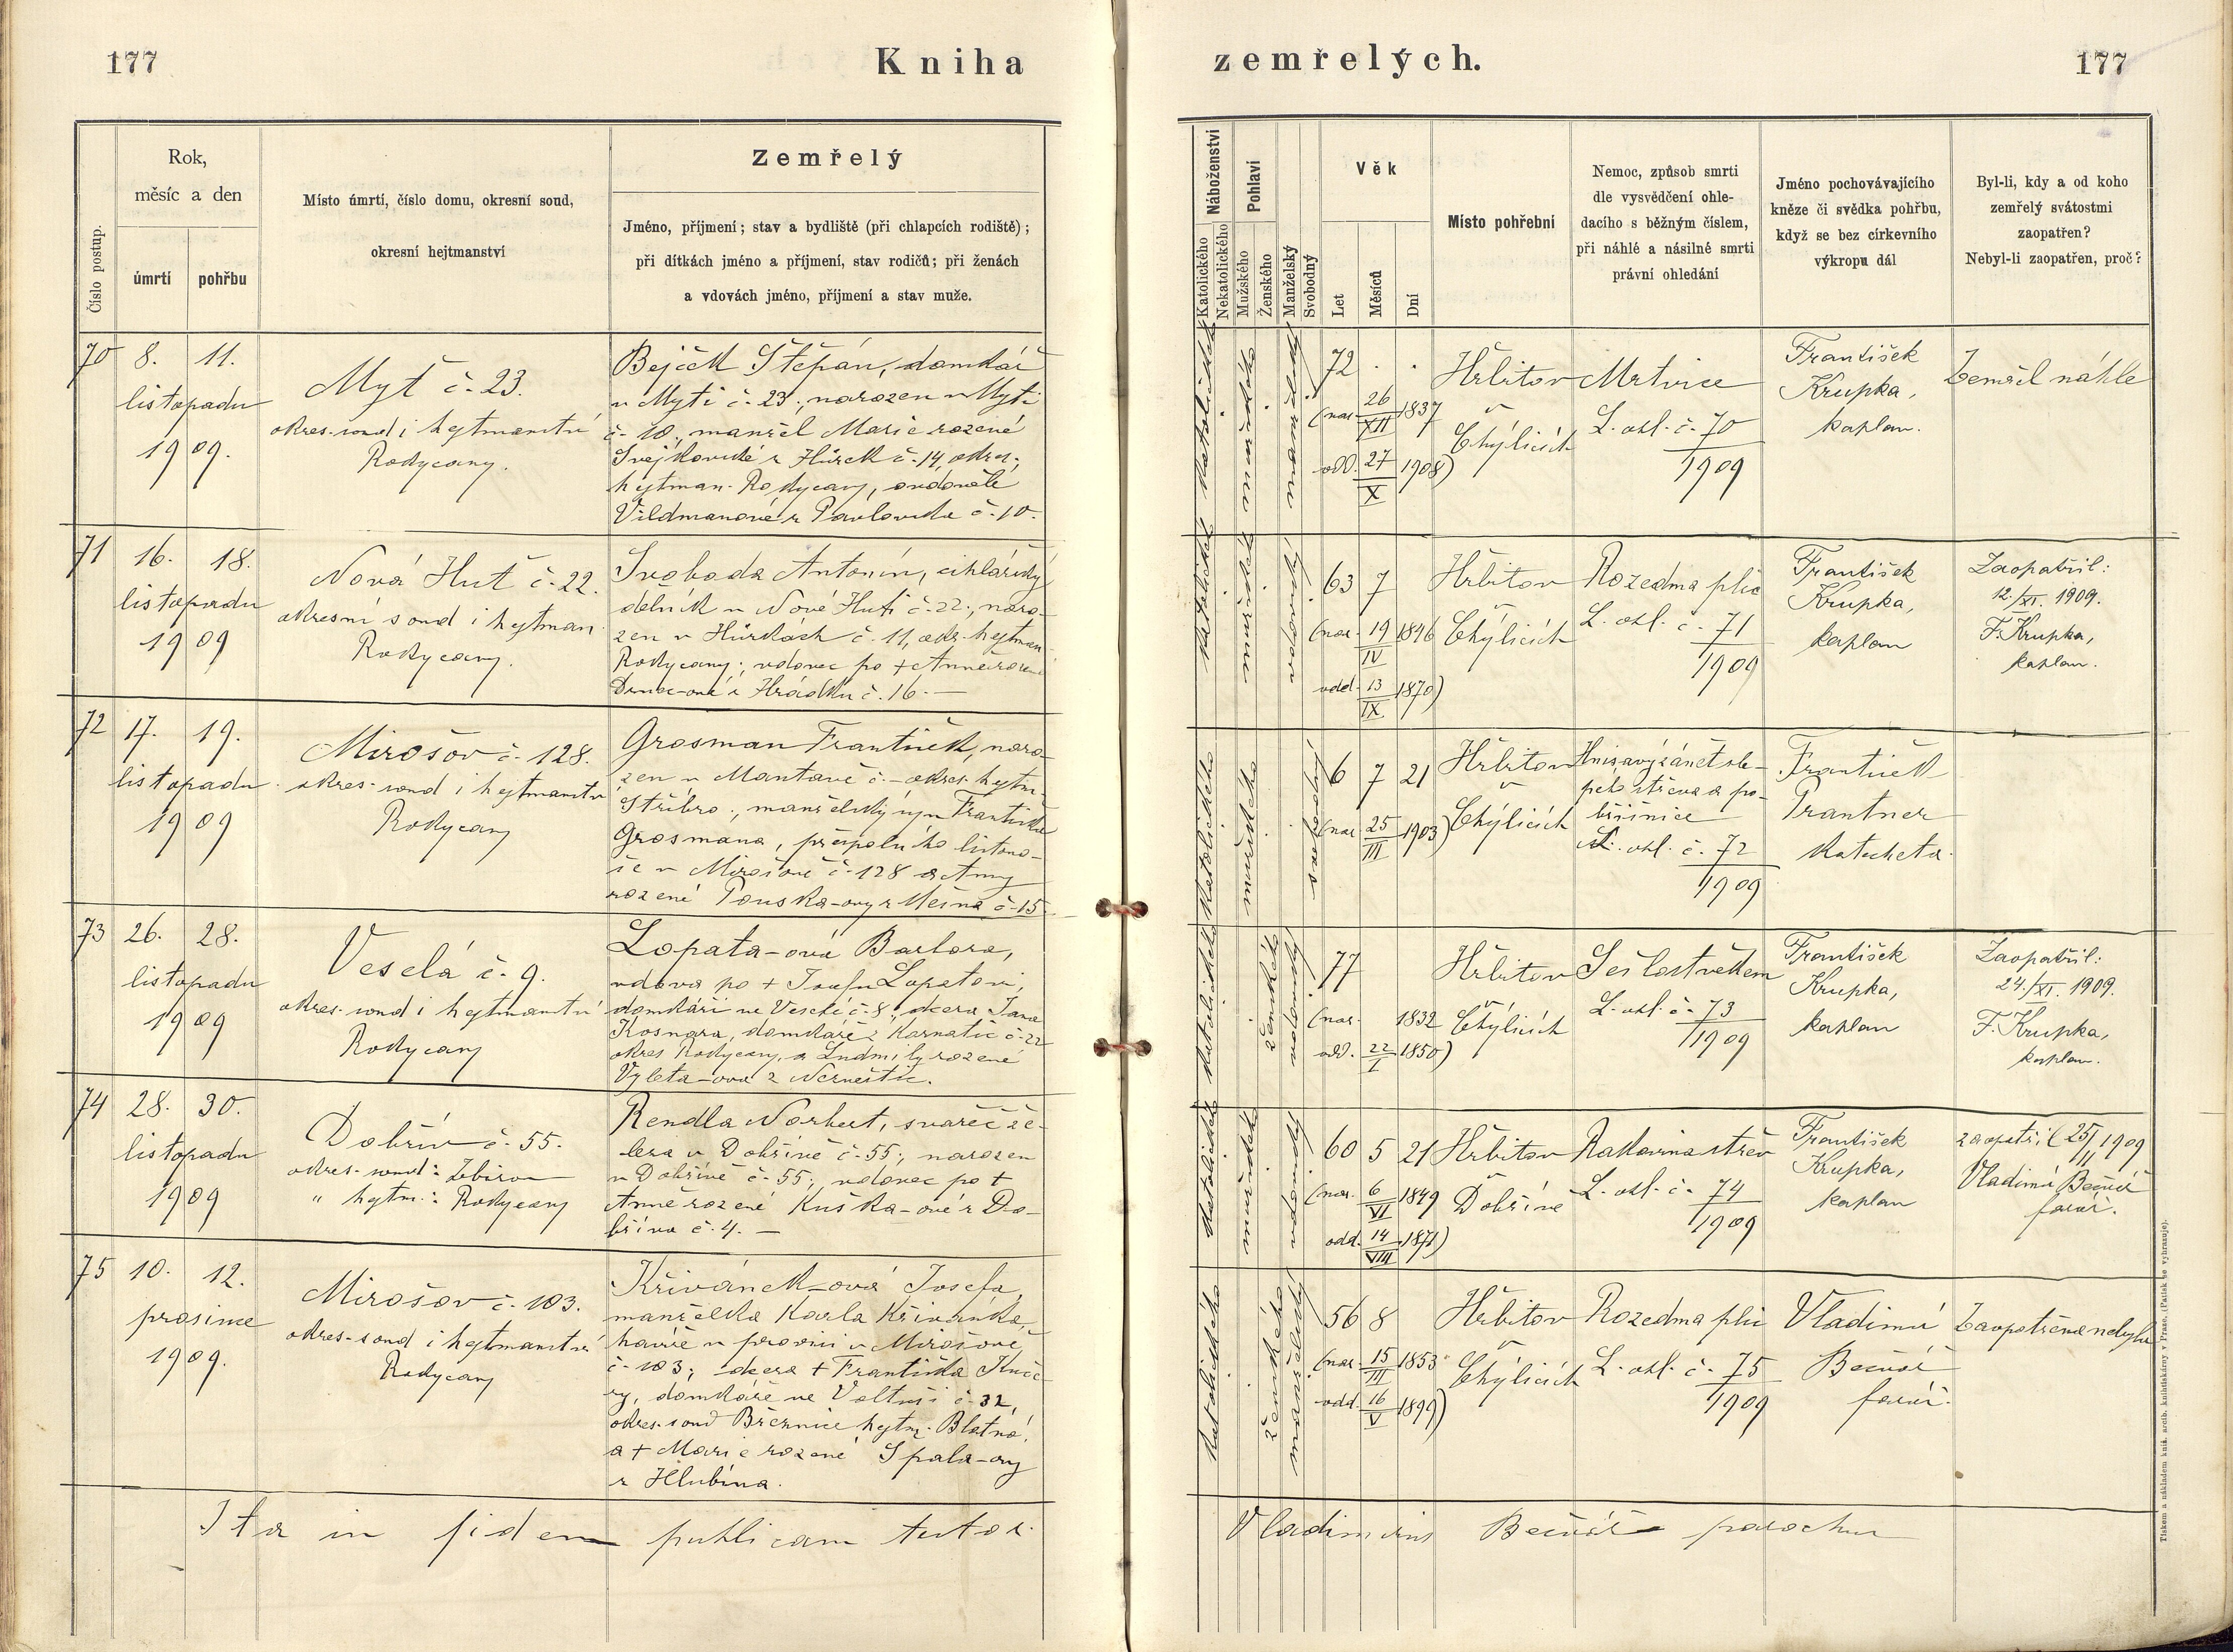 177
Kniha
zemřelých.
177
Číslo postup.
Rok,
měsíc a den
úmrtí
pohřbu
Místo úmrtí, číslo domu, okresní soud,
okresní hejtmanství
Zemřelý
Jméno, příjmení; stav a bydliště (při chlapcích rodiště);
při dítkách jméno a příjmení, stav rodičů; při ženách
a vdovách jméno, příjmení a stav muže.
Náboženství
Katolického
Nekatolického
Pohlaví
Mužského
Ženského
Manželský
Svobodný
Věk
Let
Měsíců
Dní
Místo pohřební
Nemoc, způsob smrti
dle vysvědčení ohle-
dacího s běžným číslem,
při náhlé a násilné smrti
právní ohledání
Jméno pochovávajícího
kněze či svědka pohřbu,
když se bez církevního
výkropu dál
Byl-li, kdy a od koho
zemřelý svátostmi
zaopatřen?
Nebyl-li zaopatřen, proč?
70
8. 11.
listopadu
1909.
Myt č. 23.
okres. soud i hejtmanství
Rokycany.
Bejček Štěpán, domkář
v Myti č. 23., narozen v Myti
č. 10., manžel Marie rozené
z Hůrek č. 14, okres.,
hejtman. Rokycany, ovdovělé
Vildmanové z Pavlovska č. 10.
katolického
mužského
72 . .
(nar. 26/XII 1837
odd. 27/X 1908)
Hřbitov
v
Chýlicích
Mrtvice
L. ohl. č. 70/1909
František
Krupka,
kaplan.
Zemřel náhle
71
16. 18.
listopadu
1909
Nová Huť č. 22.
okresní soud i hejtman.
Rokycany.
Svoboda Antonín, cihlářský
dělník v Nové Huti č. 22., naro-
zen v Hůrkách č. 11, okr. hejtman.
Rokycany; vdovec po + Anně rozené
z Hrádku č. 16. —
katolického
mužského
63 7
(nar. 19/IV 1846
odd. 13/IX 1870)
Hřbitov
v
Chýlicích
Rozedma plic
L. ohl. č. 71/1909
František
Krupka,
kaplan
Zaopatřil:
12./XI. 1909.
F. Krupka,
kaplan.
72
17. 19.
listopadu
1909
Mirošov č. 128.
okres. soud i hejtmanství
Rokycany
Grosman František, naro-
zen v Mantavě č. – okres. hejtm.
Stříbro., manželský syn Františka
Grosmana, přespolního listono-
še v Mirošově č. 128 a Anny
rozené Pouska-ovy z Měšna č. 15.
katolického
mužského
6 7 21
(nar. 25/III 1903)
Hřbitov
v
Chýlicích
Hnisavý zánět sle-
pého střeva a po-
břišnice
L. ohl. č. 72/1909
František
Prantner
katecheta.
73
26. 28.
listopadu
1909
Veselá č. 9.
okres. soud i hejtmanství
Rokycany
Lopata-ová Barbora,
vdova po + Josefu Lopatovi,
domkáři ve Veselé č. 8, dcera Jana
Kosnara, domkáře z Kornatic č. 22
okres Rokycany, a Ludmily rozené
Vyleta-ová z Nezvěstic.
katolického
ženského
77
(nar. 1832
odd. 22/I 1850)
Hřbitov
v
Chýlicích
Sešlost věkem
L. ohl. č. 73/1909
František
Krupka,
kaplan
Zaopatřil:
24./XI. 1909.
F. Krupka,
kaplan.
74
28. 30.
listopadu
1909
Dobřív č. 55.
okres. soud: Zbirov
" hejtm.: Rokycany
Rendla Norbert, svářeč že-
leza v Dobřívě č. 55., narozen
v Dobřívě č. 55., vdovec po +
Anně rozené Kuška-ové z Do-
bříva č. 4. —
katolického
mužského
60 5 21
(nar. 6/VI 1849
odd. 14/VIII 1871)
Hřbitov
v
Dobřívě
Rakovina střev
L. ohl. č. 74/1909
František
Krupka,
kaplan
zaopatřil 25/11 1909
Vladimír Bečvář
farář.
75
10. 12.
prosince
1909.
Mirošov č. 103.
okres. soud i hejtmanství
Rokycany
Křivánek-ová Josefa,
manželka Karla Křivánka,
havíře v provisi v Mirošově
č. 103; dcera + Františka Kuče-
ry, domkáře ve Voltuši č. 32,
okres. soud Březnice hejtm. Blatná,
a + Marie rozené Spala-ovy
z Hlubína.
katolického
ženského
manželský
56 8
(nar. 15/III 1853
odd. 16/V 1899)
Hřbitov
v
Chýlicích
Rozedma plic
L. ohl. č. 75/1909
Vladimír
Bečvář
farář.
Zaopatřena nebyla
Ita in fidem publicam testor. Vladimirus Bečvář parochus
Tiskem a nákladem kníž. arcib. knihtiskárny v Praze. (Patisk se vyhrazuje).